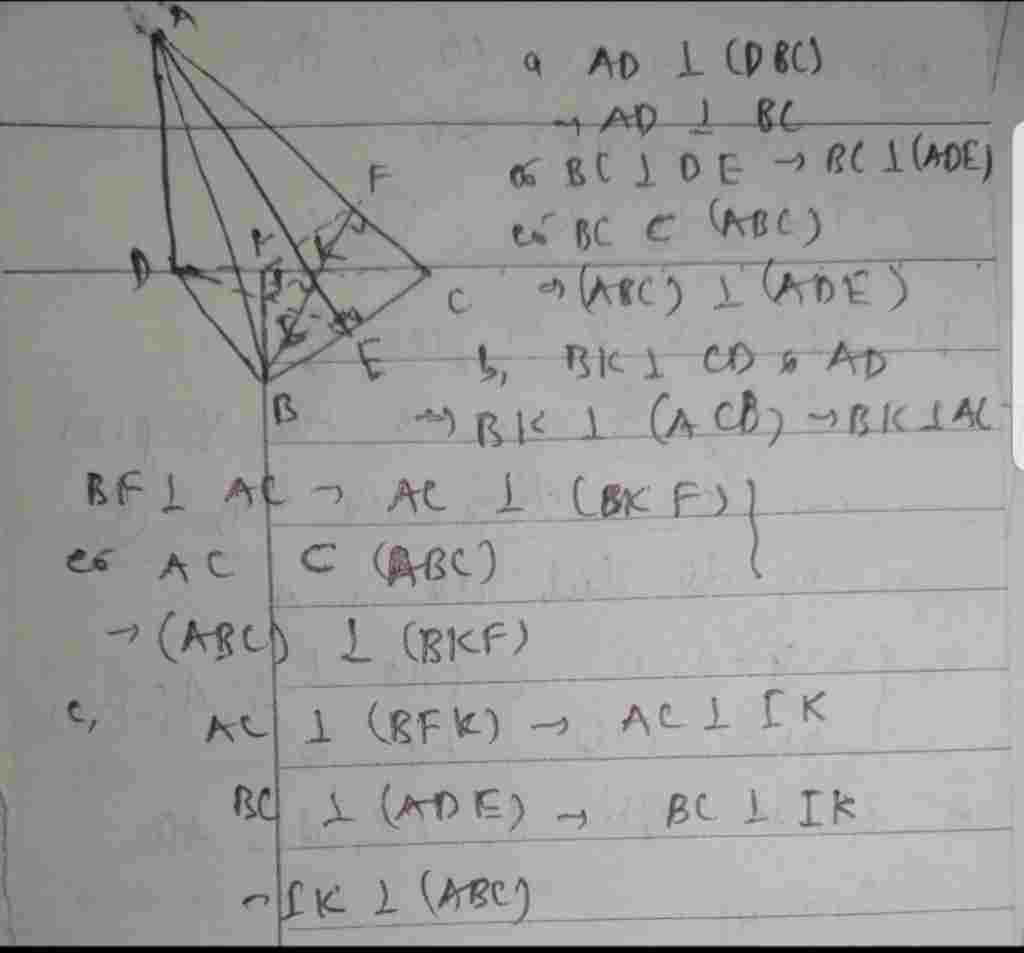 A
F
D
C
E
B
a AD ⊥ (DBC)
→ AD ⊥ BC
có BC ⊥ DE → BC ⊥ (ADE)
có BC ⊂ (ABC)
→ (ABC) ⊥ (ADE)
b, BK ⊥ CD & AD
→ BK ⊥ (ACD) → BK ⊥ AC
BF ⊥ AC → AC ⊥ (BKF) }
có AC ⊂ (ABC)
→ (ABC) ⊥ (BKF)
c, AC ⊥ (BFK) → AC ⊥ IK
BC ⊥ (ADE) → BC ⊥ IK
→ IK ⊥ (ABC)